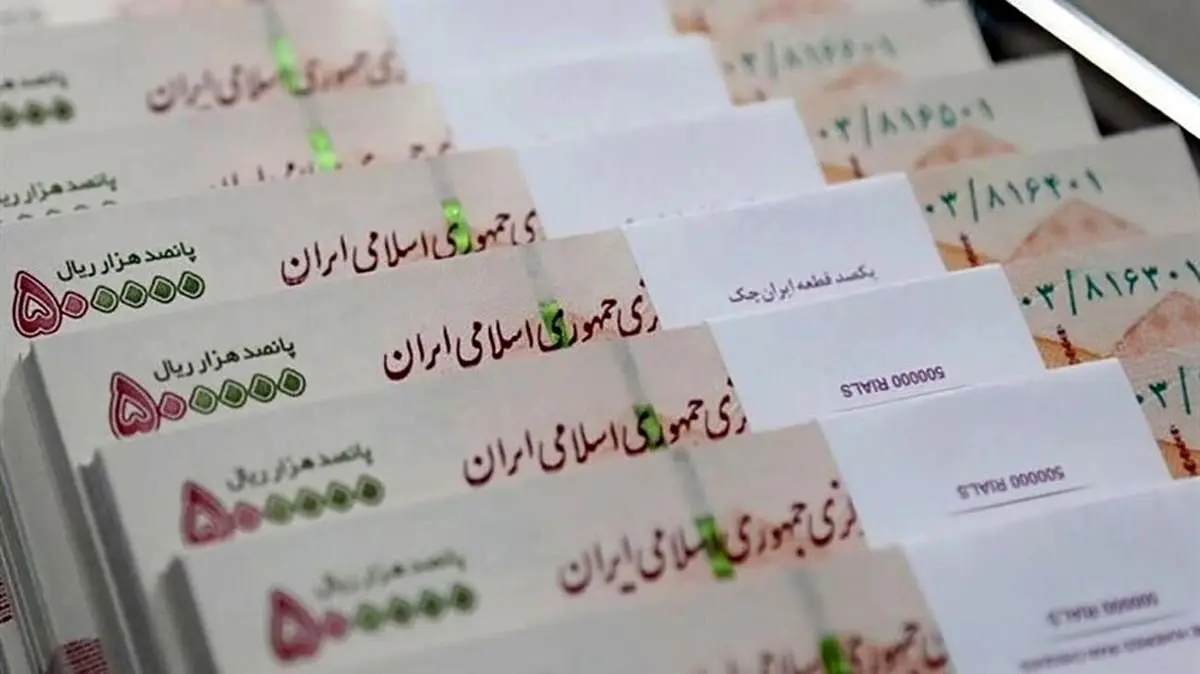 پانصد هزار
جمهوری اسلامی ایران
۰۳/۸۱۶۶۰۱
پانصد هزار ریال
۰۳/۸۱۶۵۰۱
پانصد هزار ریال
۵۰۰۰۰۰
جمهوری اسلامی ایران
۰۳/۸۱۶۴۰۱
یکصد قطعه ایران چک
پانصد هزار ریال
۵۰۰۰۰۰
جمهوری اسلامی ایران
۰۳/۸۱۶۳۰۱
500000 RIALS
پانصد هزار ریال
۵۰۰۰۰۰
جمهوری اسلامی ایران
۰۳/
500000 RIALS
پانصد هزار ریال
۵۰۰۰۰۰
جمهوری اسلامی ایران
500000 RIALS
جمهوری